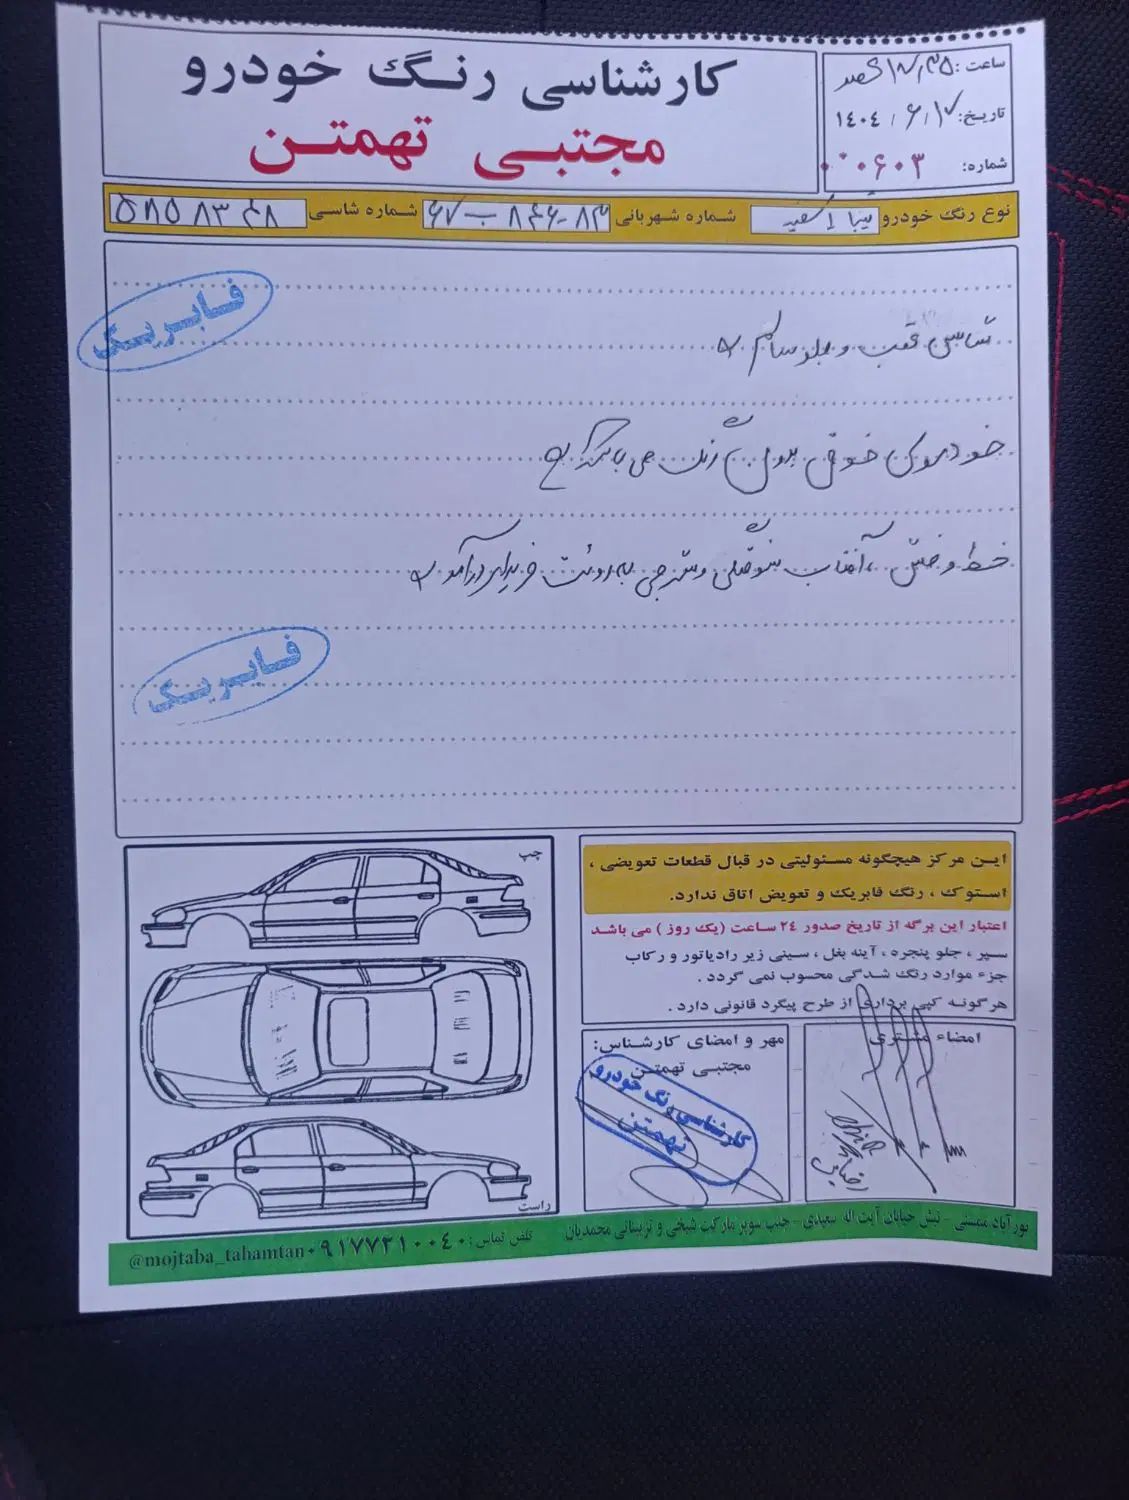 کارشناسی رنگ خودرو
مجتبی تهمتن
ساعت: ۱۷,۳۵ عصر
تاریخ: ۱۴۰۴/۶/۱۷
شماره: ۰۰۰۶۰۳
نوع رنگ خودرو تیبا ۱ سفید شماره شهربانی ۶۷ ب ۸۴۶-۸۳ شماره شاسی
فابریک
شاسی عقب و جلو سالم
خودروی فوق بدون رنگ می باشد
خط و خش، آفتاب سوختگی و به رویت خریدار درآمد
فابریک
چپ
راست
این مرکز هیچگونه مسئولیتی در قبال قطعات تعویضی ،
استوک ، رنگ فابریک و تعویض اتاق ندارد.
اعتبار این برگه از تاریخ صدور ۲۴ ساعت (یک روز ) می باشد
سپر ، جلو پنجره ، آینه بغل ، سینی زیر رادیاتور و رکاب
جزء موارد رنگ شدگی محسوب نمی گردد .
هرگونه کپی برداری از طرح پیگرد قانونی دارد .
امضاء مشتری
مهر و امضای کارشناس:
مجتبی تهمتن
کارشناسی رنگ خودرو
تهمتن
نورآباد ممسنی - نبش خیابان آیت اله سعیدی - جنب سوپر مارکت شیخی و تزییناتی محمدیان
تلفن تماس: ۰۹۱۷۷۲۱۰۰۴۰
@mojtaba_tahamtan